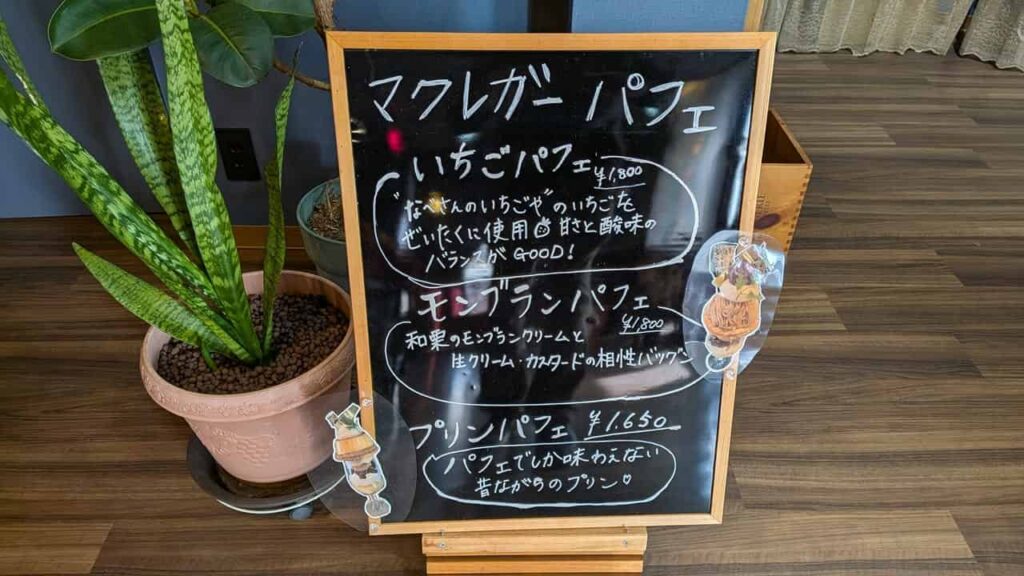 マクレガー パフェ
いちごパフェ ¥1,800
"なべさんのいちごや"のいちごを
ぜいたくに使用 甘さと酸味の
バランスが GOOD!
モンブランパフェ ¥1,800
和栗のモンブランクリームと
生クリーム・カスタードの相性バツグン
プリンパフェ ¥1,650
パフェでしか味わえない
昔ながらのプリン♡